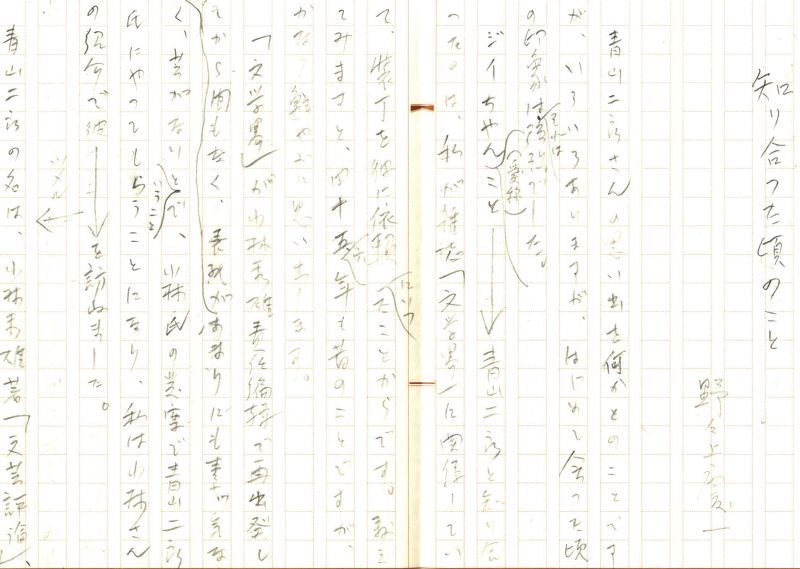 知り合った頃のこと
野々上慶一
青山二郎さんの思い出を何かとのことです
が、いろいろありますが、はじめて会った頃
の印象は強烈でした。
それは
(愛称)
ジイちゃんこと
青山二郎と知り合
ったのは、私が雑誌「文学界」に関係してい
て、装丁を彼に依頼したことからです。
にいって
てみますと、四十五年も昔のことですが、
かなり鮮やかに思い出します。
「文学界」が小林秀雄責任編輯で再出発し
てから間もなく、表紙があまりにも素っ気な
く、芸がないとで、小林氏の発案で青山二郎
いうこと
氏にやってもらうことになり、私は小林さん
の紹介で彼
を訪ねました。
ツメル
青山二郎の名は、小林秀雄著「文芸評論」、